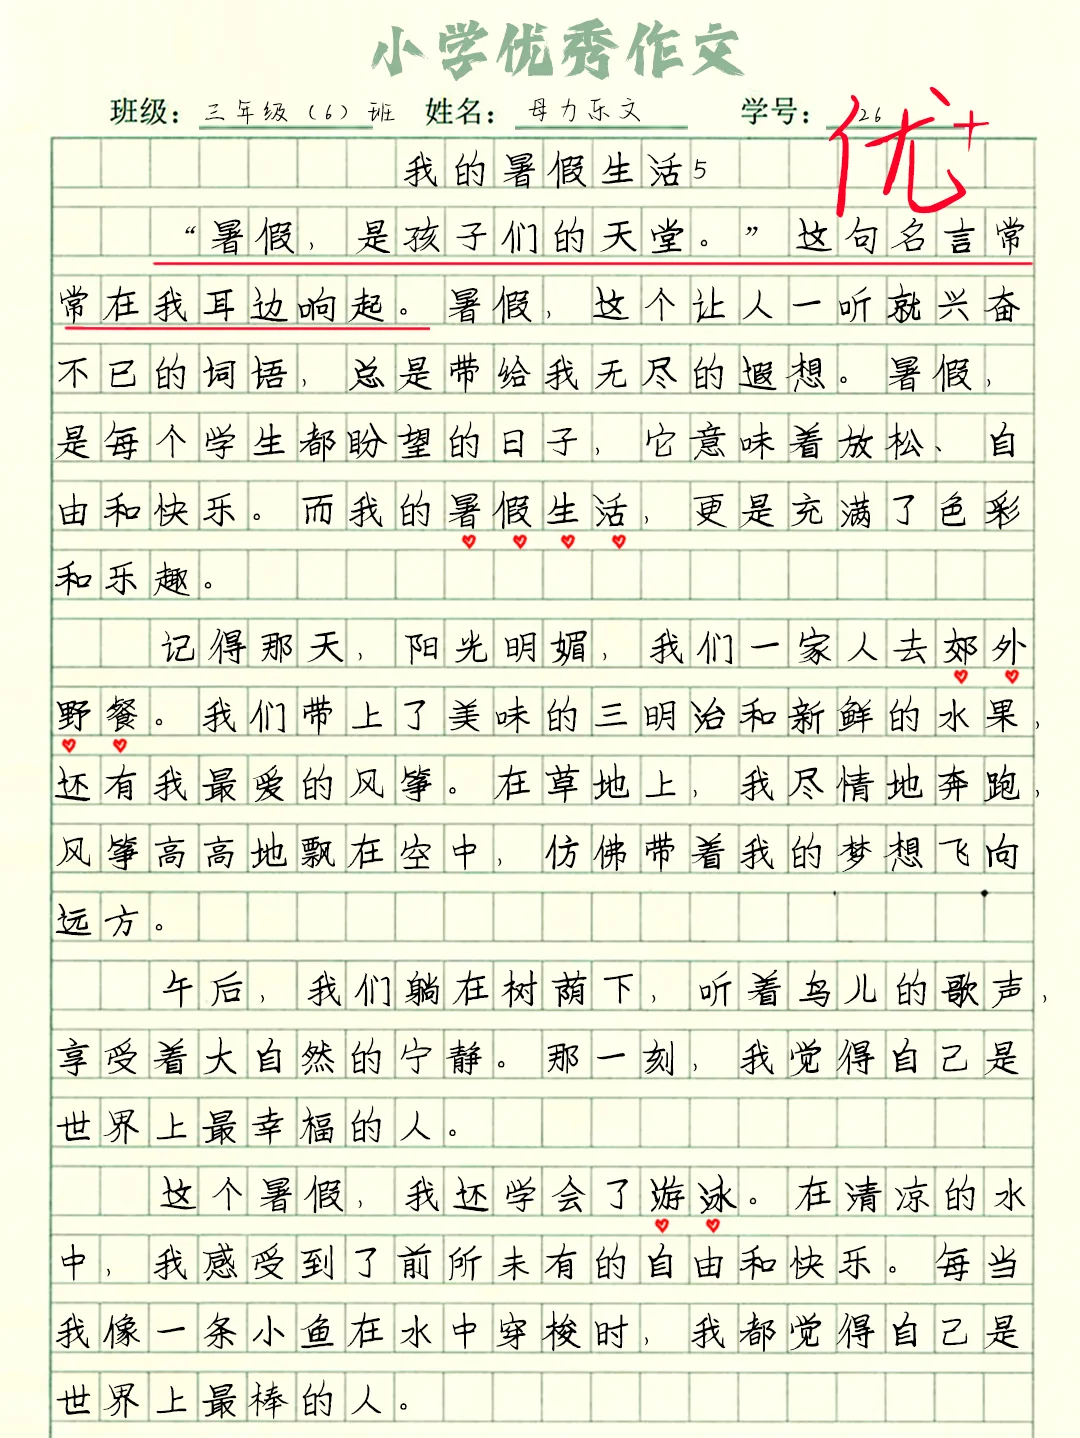 小学优秀作文
班级：三年级（6）班 姓名：母力乐文 学号：26
优+
我的暑假生活5
“暑假，是孩子们的天堂。”这句名言常
常在我耳边响起。暑假，这个让人一听就兴奋
不已的词语，总是带给我无尽的遐想。暑假，
是每个学生都盼望的日子，它意味着放松、自
由和快乐。而我的暑假生活，更是充满了色彩
和乐趣。
记得那天，阳光明媚，我们一家人去郊外
野餐。我们带上了美味的三明治和新鲜的水果，
还有我最爱的风筝。在草地上，我尽情地奔跑，
风筝高高地飘在空中，仿佛带着我的梦想飞向
远方。
午后，我们躺在树荫下，听着鸟儿的歌声，
享受着大自然的宁静。那一刻，我觉得自己是
世界上最幸福的人。
这个暑假，我还学会了游泳。在清凉的水
中，我感受到了前所未有的自由和快乐。每当
我像一条小鱼在水中穿梭时，我都觉得自己是
世界上最棒的人。